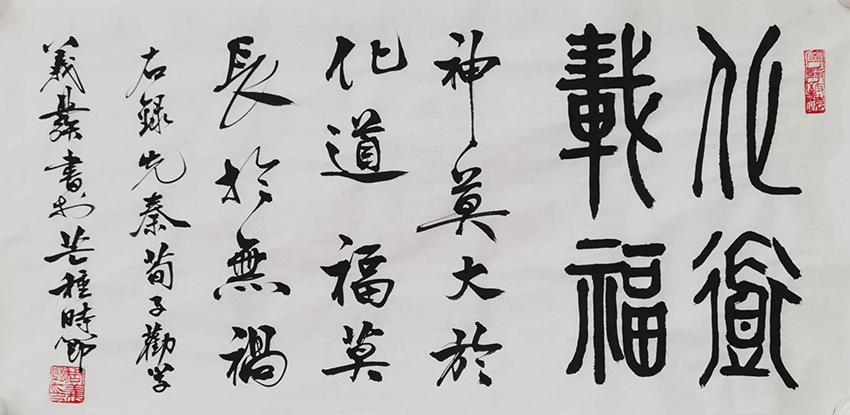 化道
載福
神莫大於
化道福莫
長於無禍
右錄先秦荀子勸學
義燊書於芒種時節